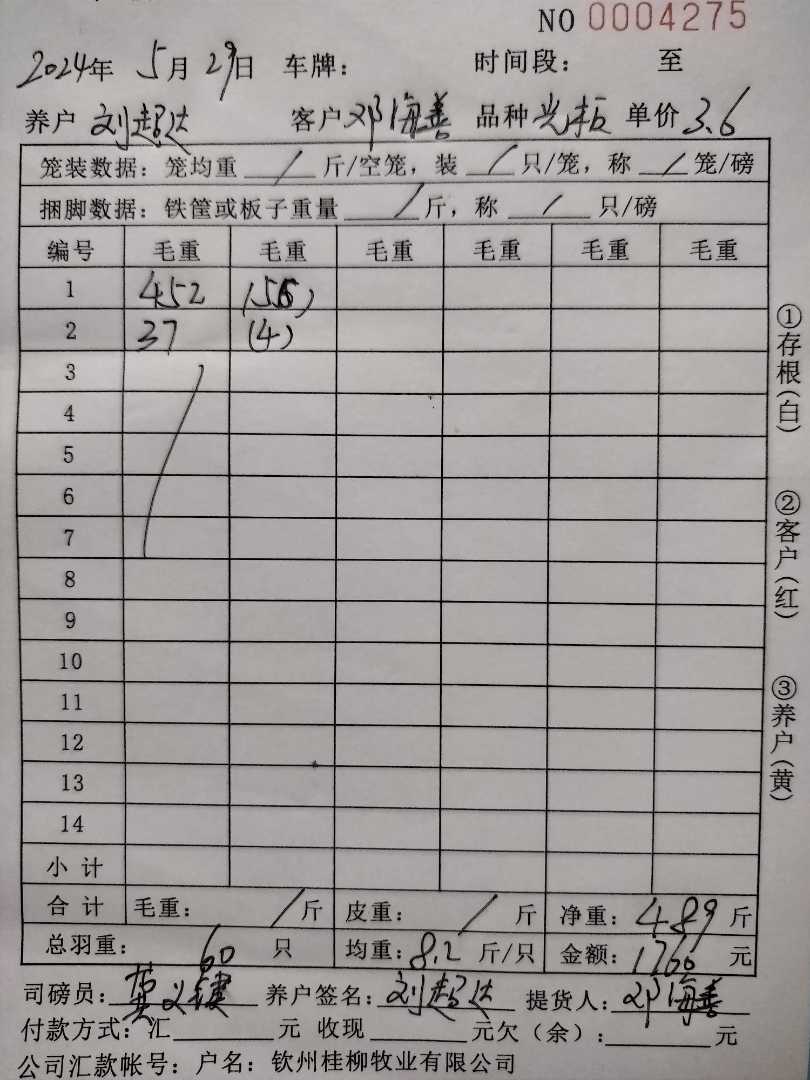 NO 0004275
2024年 5月 29日 车牌： 时间段： 至
养户 刘超达 客户 邓海善 品种 光板 单价 3.6
笼装数据：笼均重 / 斤/空笼，装 / 只/笼，称 / 笼/磅
捆脚数据：铁筐或板子重量 / 斤，称 / 只/磅
编号 毛重 毛重 毛重 毛重 毛重 毛重
1 452 (56)
2 37 (4)
3
4
5
6
7
8
9
10
11
12
13
14
小计
合计 毛重： / 斤 皮重： / 斤 净重：489 斤
总羽重： 60 只 均重：8.2 斤/只 金额：1760 元
司磅员： 养户签名：刘超达 提货人：邓海善
付款方式：汇 元 收现 元欠（余）： 元
公司汇款帐号：户名：钦州桂柳牧业有限公司
①存根(白)
②客户(红)
③养户(黄)